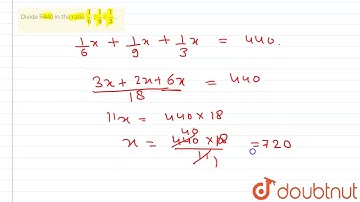 Divide ₹440 in the ratio 1/6 : 1/9 : 1/3
1/6 x + 1/9 x + 1/3 x = 440.
3x + 2x + 6x / 18 = 440
11x = 440 × 18
x = 440 × 18 / 11 = 720
40
1
doubtnut